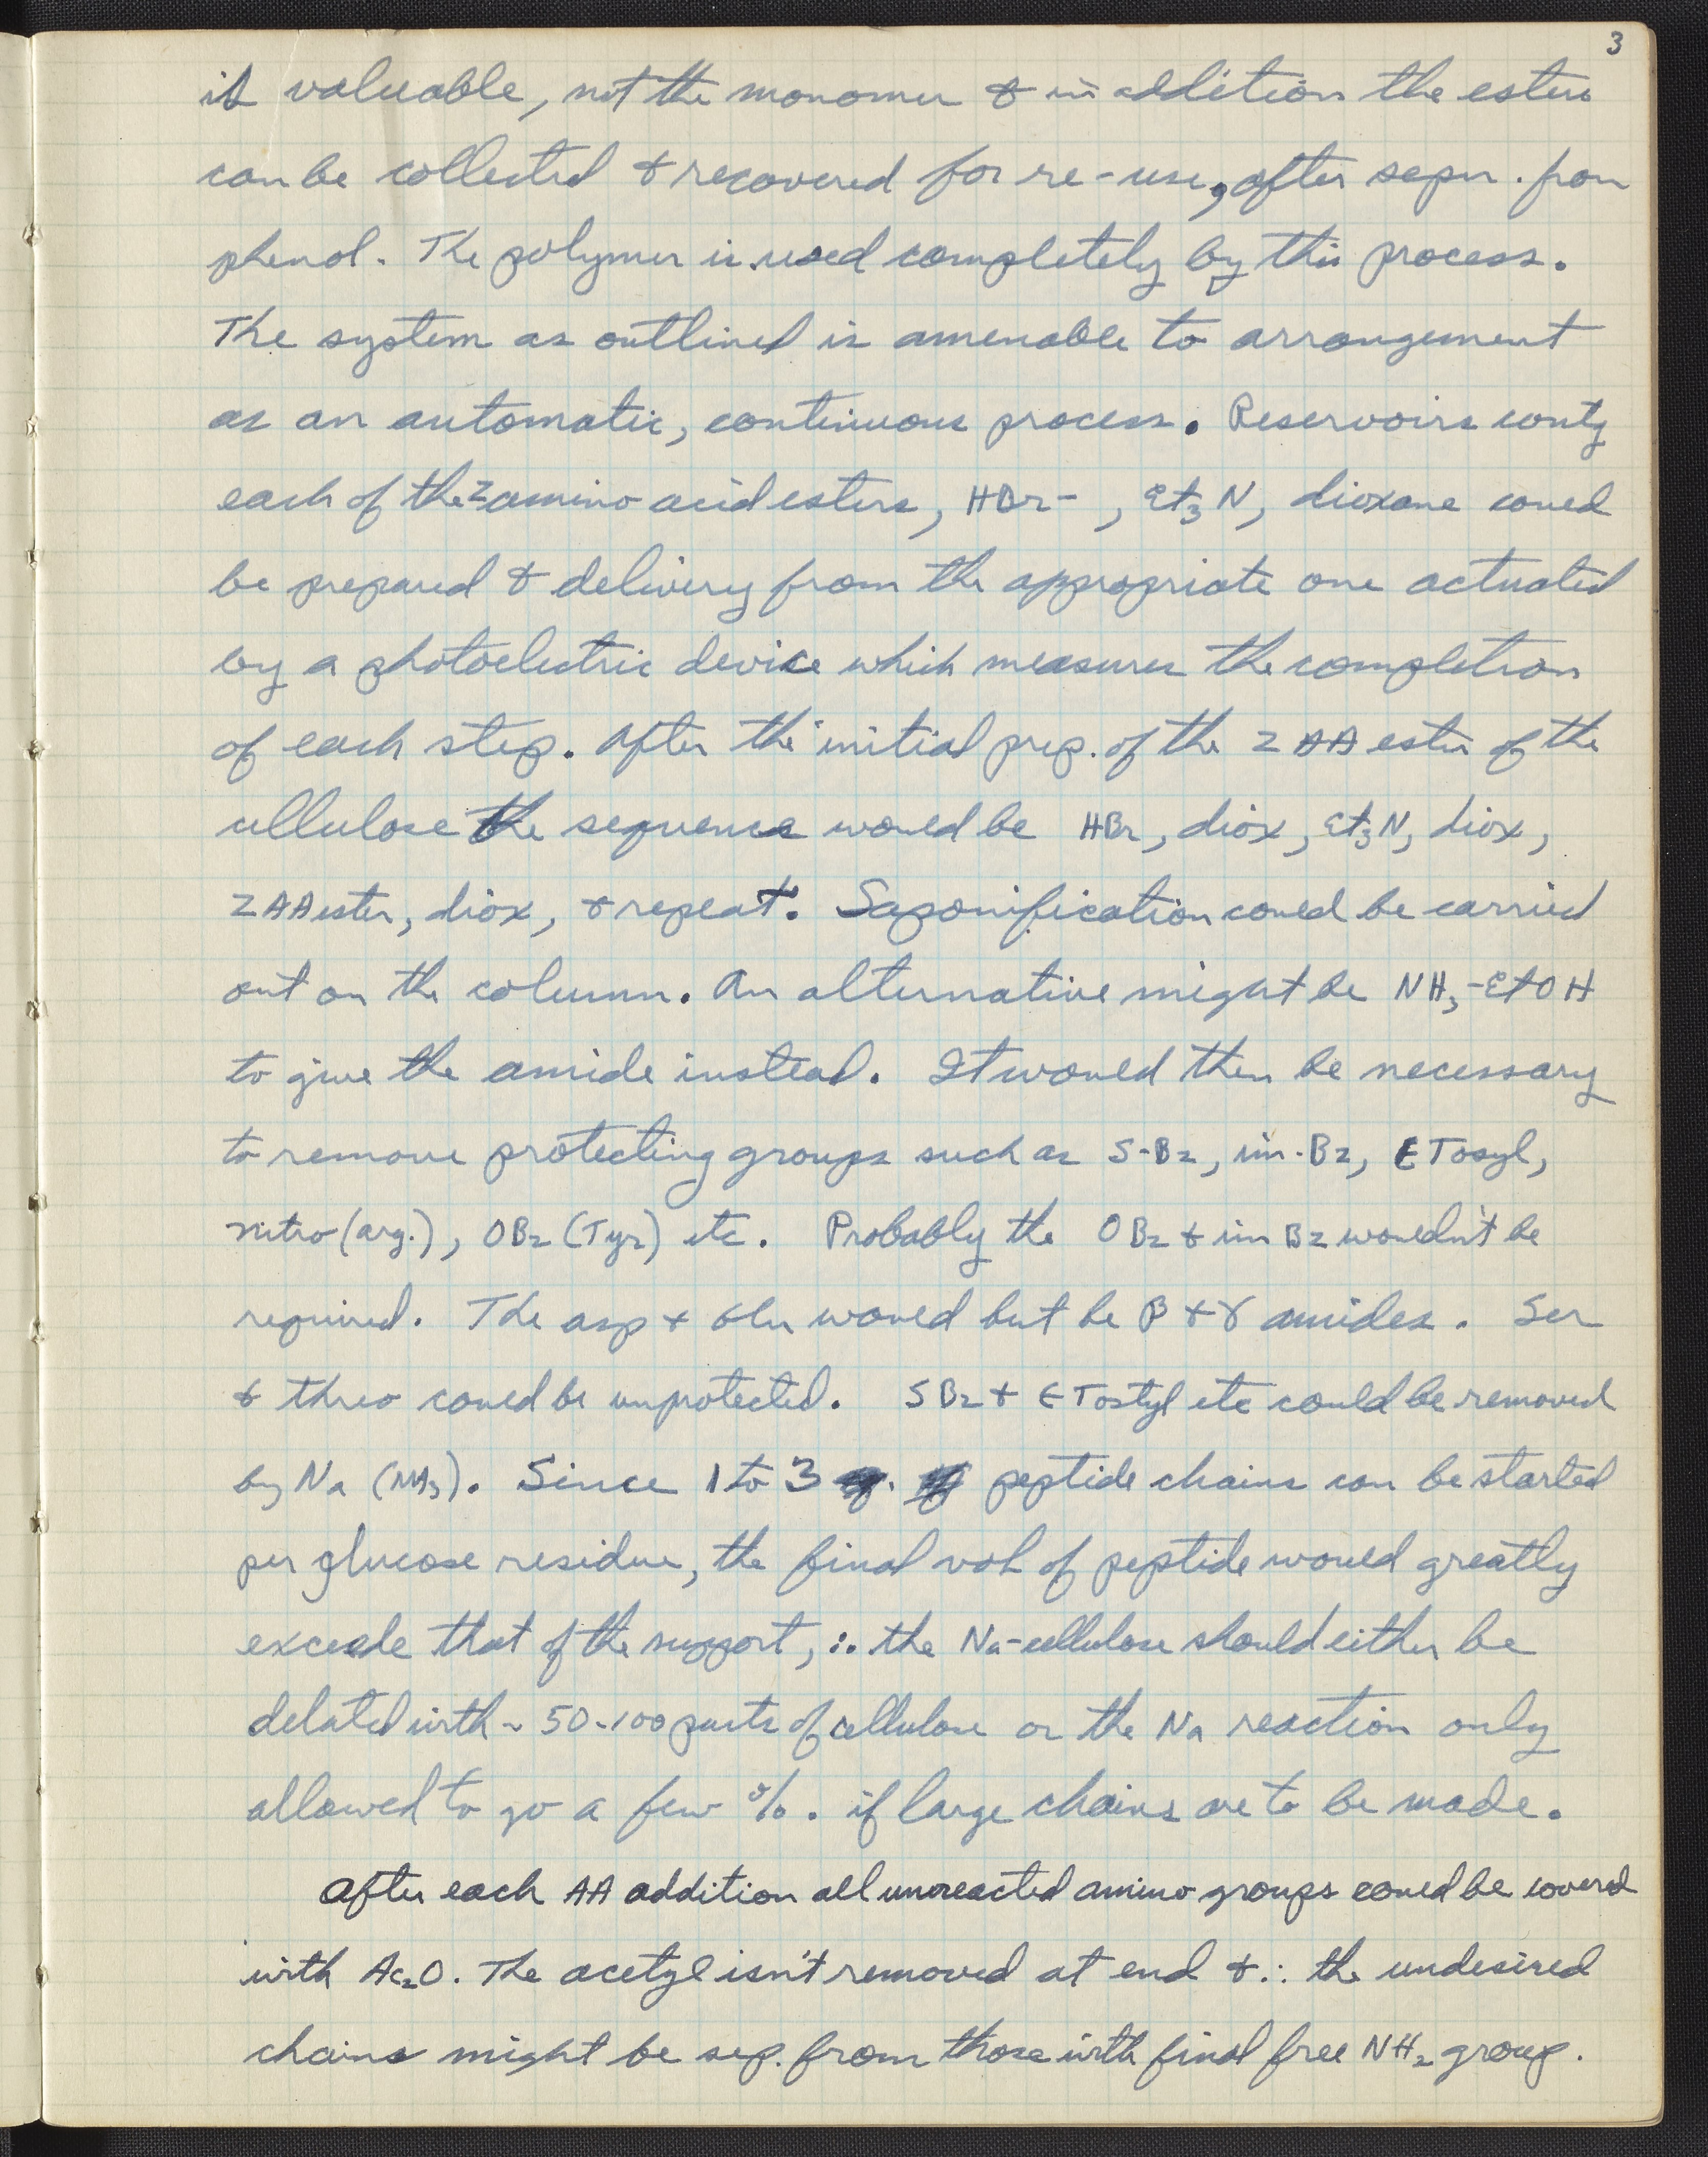 3
is valuable, not the monomer & in addition the esters
can be collected & recovered for re-use, after sepn. from
phenol. The polymer is used completely by this process.
The system as outlined is amenable to arrangement
as an automatic, continuous process. Reservoirs contg
each of the Z amino acid esters, HBr- , Et₃N, dioxane could
be prepared & delivery from the appropriate one actuated
by a photoelectric device which measures the completion
of each step. After the initial prep. of the Z AA ester of the
cellulose the sequence would be HBr, diox, Et₃N, diox,
Z AA ester, diox, & repeat. Saponification could be carried
out on the column. An alternative might be NH₃-EtOH
to give the amide instead. It would then be necessary
to remove protecting groups such as S-Bz, im-Bz, ε Tosyl,
nitro (arg.), OBz (Tyr) etc. Probably the OBz & im Bz wouldn't be
required. The asp + glu would but be β + γ amides. Ser
& threo could be unprotected. SBz + ε Tostyl etc could be removed
by Na (NH₃). Since 1 to 3 peptide chains can be started
per glucose residue, the final vol of peptide would greatly
exceede that of the support, ∴ the Na-cellulose should either be
deluted with ~ 50-100 parts of cellulose or the Na reaction only
allowed to go a few %. if large chains are to be made.
After each AA addition all unreacted amino groups could be covered
with Ac₂O. The acetyl isn't removed at end & ∴ the undesired
chains might be sep. from those with final free NH₂ group.